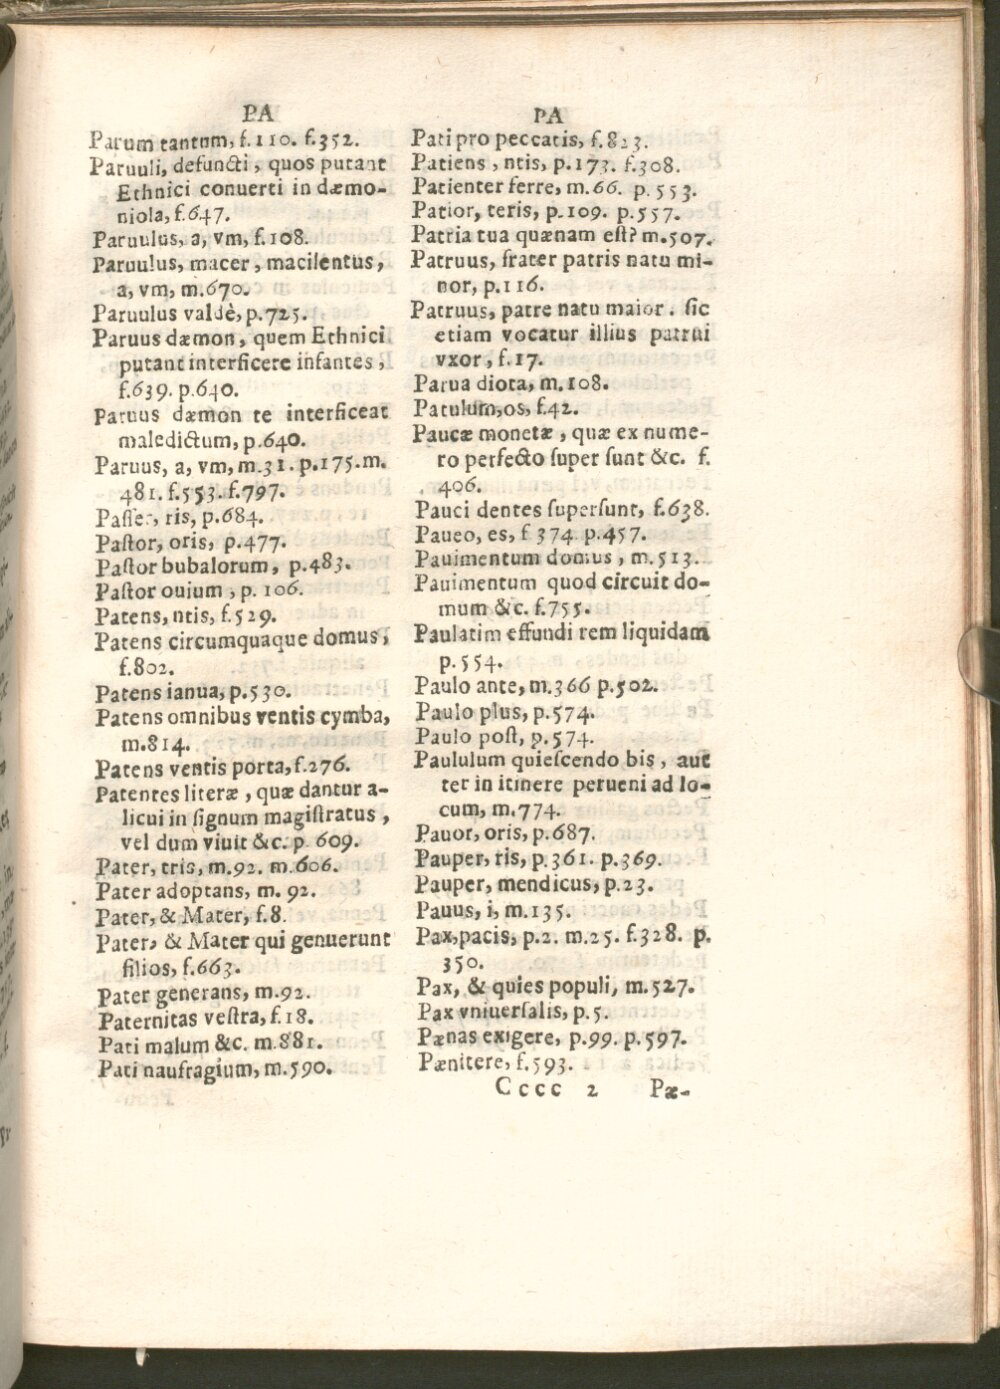 PA
Parum tantum, f.110. f.352.
Paruuli, defuncti, quos putant
Ethnici conuerti in dæmo-
niola, f.647.
Paruulus, a, vm, f.108.
Paruulus, macer, macilentus,
a, vm, m.670.
Paruulus valdè, p.725.
Paruus dæmon, quem Ethnici
putant interficere infantes,
f.639. p.640.
Paruus dæmon te interficeat
maledictum, p.640.
Paruus, a, vm, m.31. p.175.m.
481. f.553. f.797.
Paſſer, ris, p.684.
Paſtor, oris, p.477.
Paſtor bubalorum, p.483.
Paſtor ouium, p. 106.
Patens, ntis, f.529.
Patens circumquaque domus,
f.802.
Patens ianua, p.530.
Patens omnibus ventis cymba,
m.814.
Patens ventis porta, f.276.
Patentes literæ, quæ dantur a-
licui in ſignum magiſtratus,
vel dum viuit &c. p. 609.
Pater, tris, m.92. m.606.
Pater adoptans, m. 92.
Pater, & Mater, f.8.
Pater, & Mater qui genuerunt
filios, f.663.
Pater generans, m.92.
Paternitas veſtra, f.18.
Pati malum &c. m.881.
Pati naufragium, m.590.
PA
Pati pro peccatis, f.823.
Patiens, ntis, p.173. f.308.
Patienter ferre, m.66. p.553.
Patior, teris, p.109. p.557.
Patria tua quænam eſt? m.507.
Patruus, frater patris natu mi-
nor, p.116.
Patruus, patre natu maior. ſic
etiam vocatur illius patrui
vxor, f.17.
Parua diota, m.108.
Patulum, os, f.42.
Paucæ monetæ, quæ ex nume-
ro perfecto ſuper ſunt &c. f.
406.
Pauci dentes ſuperſunt, f.638.
Paueo, es, f 374 p.457.
Pauimentum domus, m.513.
Pauimentum quod circuit do-
mum &c. f.755.
Paulatim effundi rem liquidam
p.554.
Paulo ante, m.366 p.502.
Paulo plus, p.574.
Paulo poſt, p.574.
Paululum quieſcendo bis, aut
ter in itinere perueni ad lo-
cum, m.774.
Pauor, oris, p.687.
Pauper, ris, p.361. p.369.
Pauper, mendicus, p.23.
Pauus, i, m.135.
Pax, pacis, p.2. m.25. f.328. p.
350.
Pax, & quies populi, m.527.
Pax vniuerſalis, p.5.
Pænas exigere, p.99. p.597.
Pænitere, f.593.
Cccc 2 Pæ-